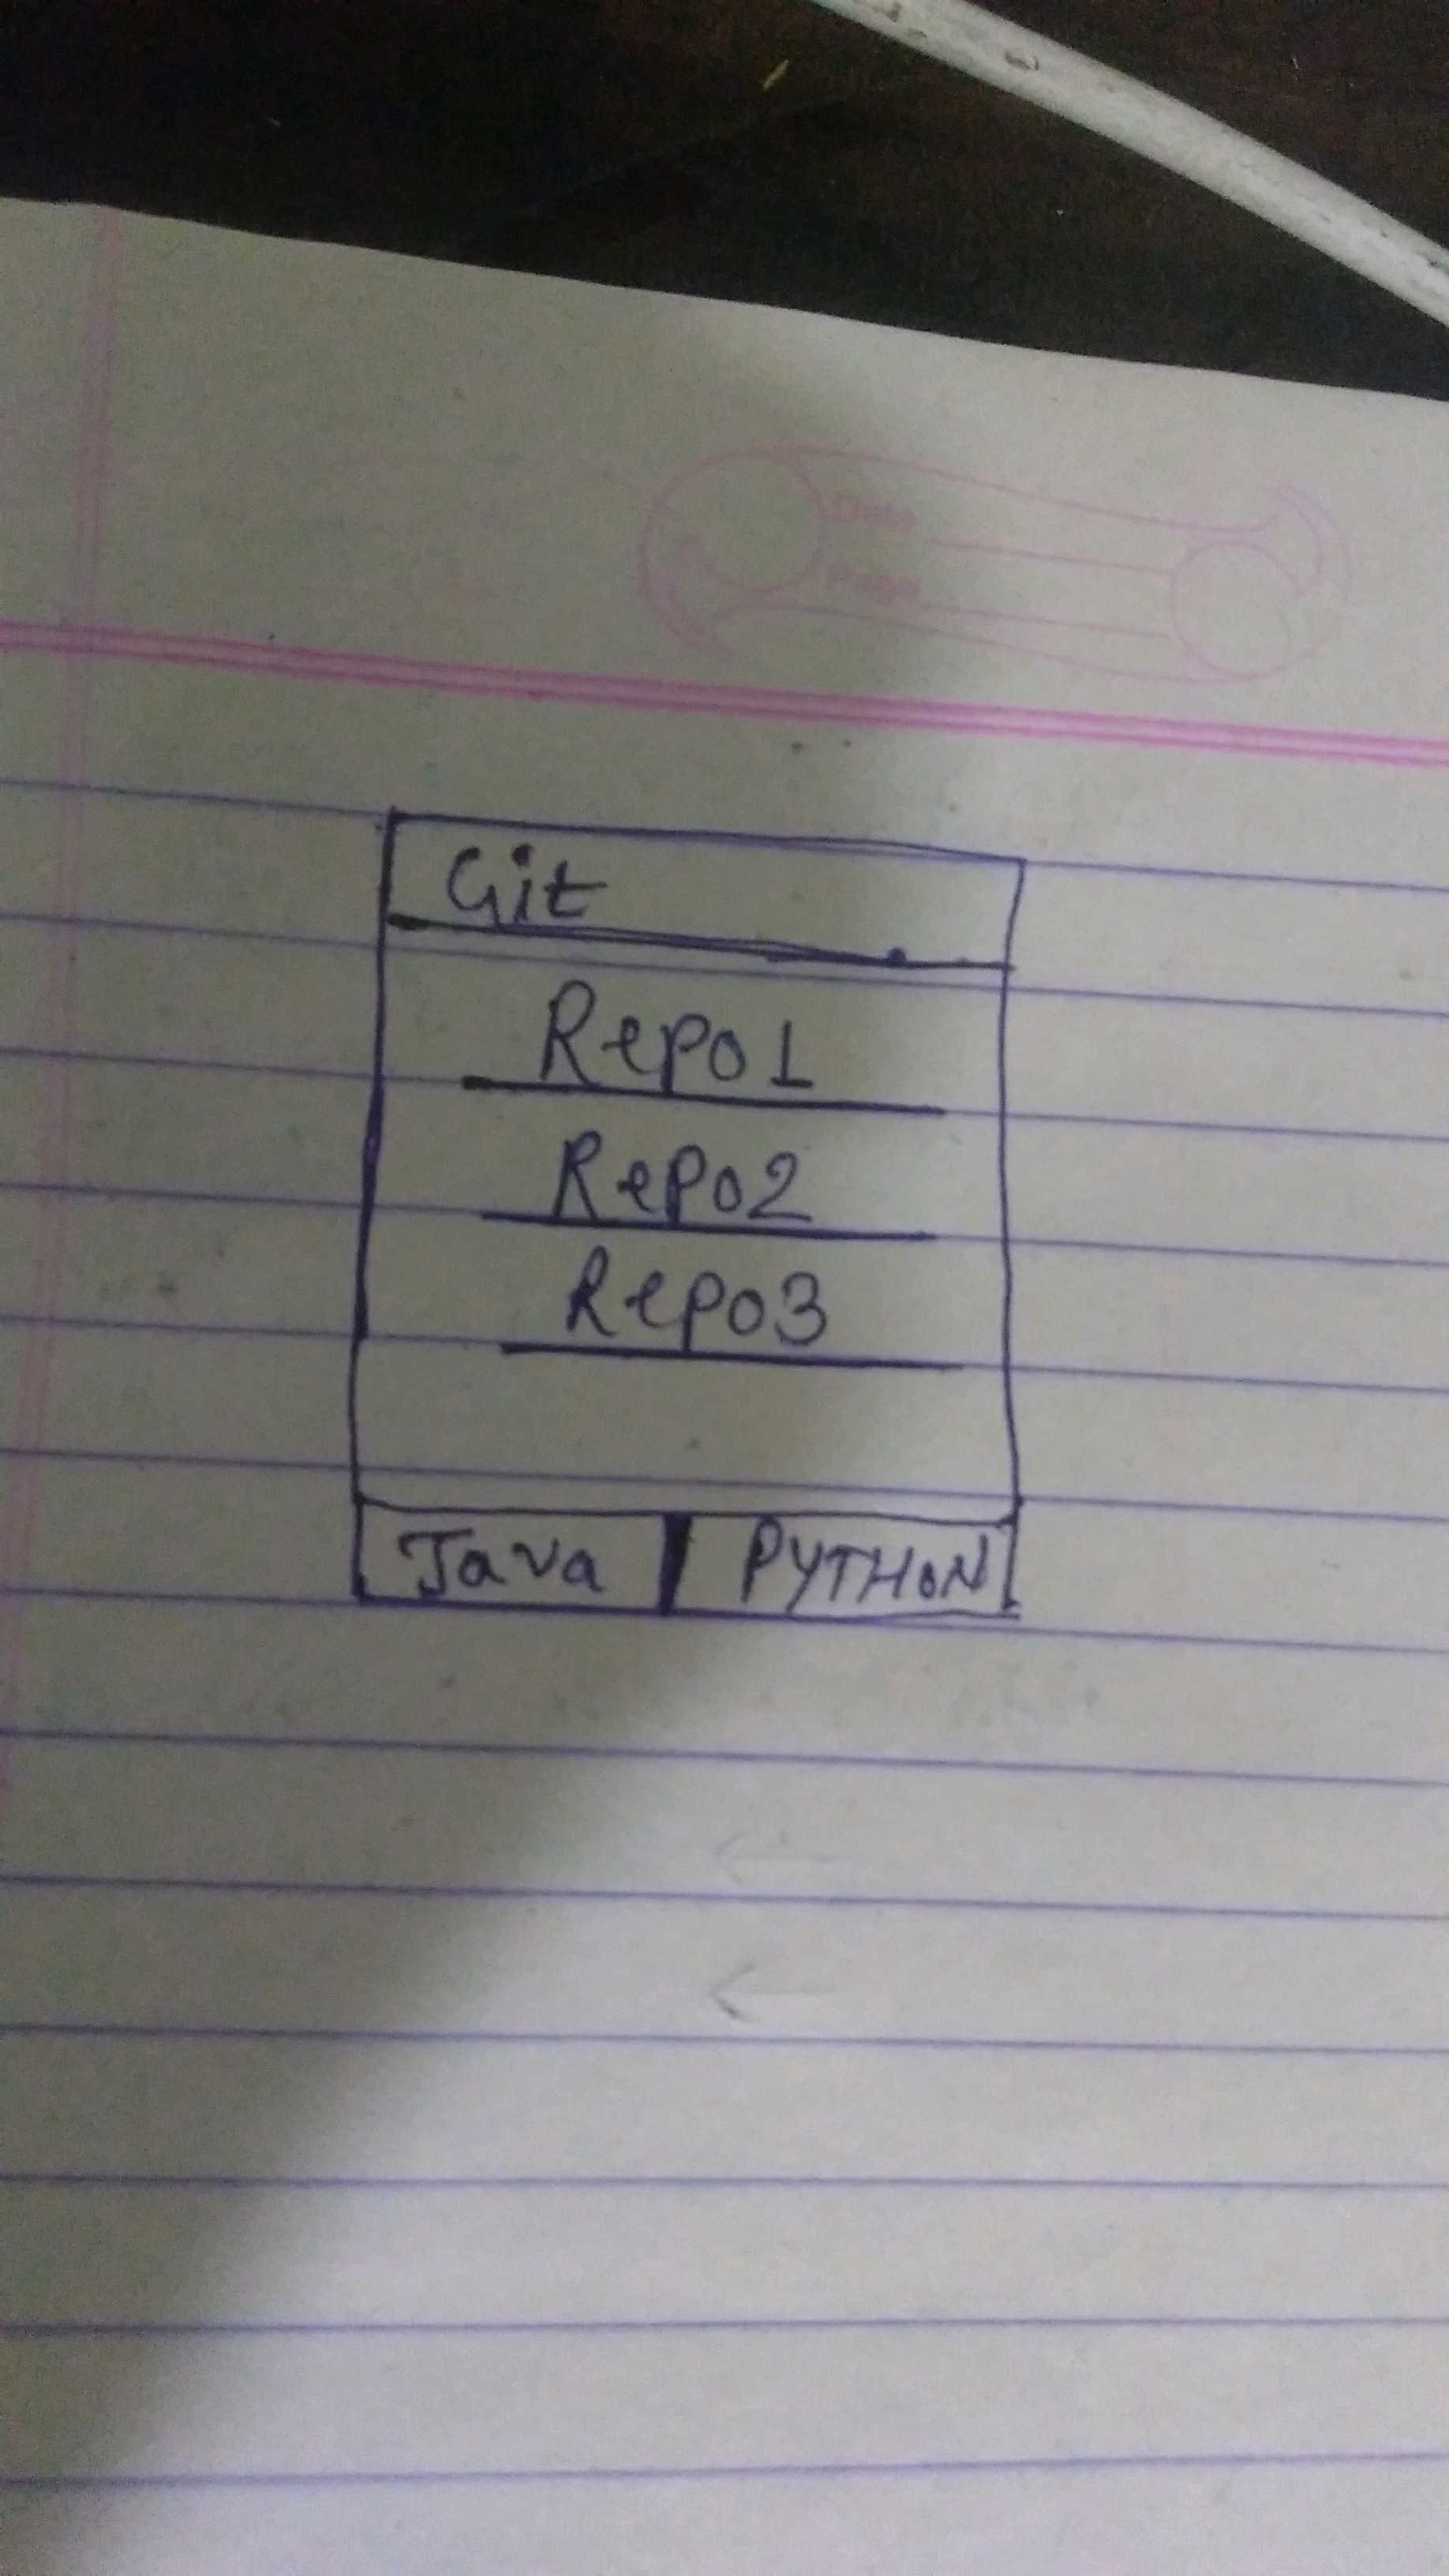 Date
Page
Git
Repo1
Repo2
Repo3
Java PYTHON